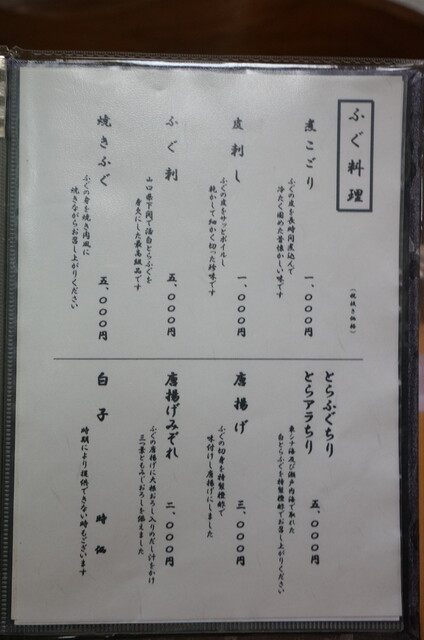 ふぐ料理
(税抜き価格)
煮こごり
ふぐの皮を長時間煮込んで
冷たく固めた昔懐かしい味です
一、〇〇〇円
皮刺し
ふぐの皮をサッとボイルし
乾かして細かく切った珍味です
一、〇〇〇円
ふぐ刺
山口県下関で活白とらふぐを
身欠にした最高級品です
五、〇〇〇円
焼きふぐ
ふぐの身を焼き肉風に
焼きながらお召し上がりください
五、〇〇〇円
とらふぐちり
とらアラちり
東シナ海及び瀬戸内海で取れた
白とらふぐを特製橙酢でお召し上がりください
五、〇〇〇円
唐揚げ
ふぐの切身を特製橙酢で
味付けし唐揚げにしました
三、〇〇〇円
唐揚げみぞれ
ふぐの唐揚げに大根おろし入りのだし汁をかけ
三つ葉ともみじおろしを添えました
二、〇〇〇円
白子
時期により提供できない時もございます
時価